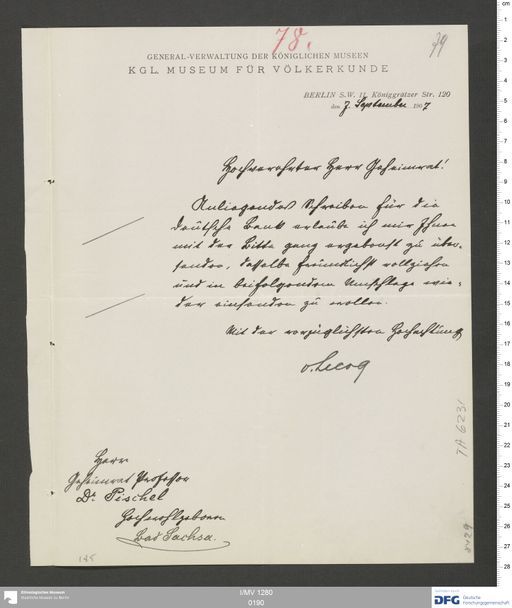 78.
79
GENERAL-VERWALTUNG DER KÖNIGLICHEN MUSEEN
KGL. MUSEUM FÜR VÖLKERKUNDE
BERLIN S.W. 11, Königgrätzer Str. 120
den 7 September 1907
Hochverehrter Herr Geheimrat!
Anliegendes Schreiben für die
Deutsche Bank erlaube ich mir Ihnen
mit der Bitte ganz ergebenst zu über-
senden, dasselbe freundlichst vollziehen
und in beifolgendem Umschlage wie-
der einsenden zu wollen.
Mit der vorzüglichsten Hochachtung
v. Lecoq
Herrn
Geheimrat Professor
Dr. Pischel
Hochwohlgeboren
Bad Sachsa.
TA 6231
Ethnologisches Museum
Staatliche Museen zu Berlin
I/MV 1280
0190
DFG Deutsche
Forschungsgemeinschaft
cm
1
2
3
4
5
6
7
8
9
10
11
12
13
14
15
16
17
18
19
20
21
22
23
24
25
26
27
28